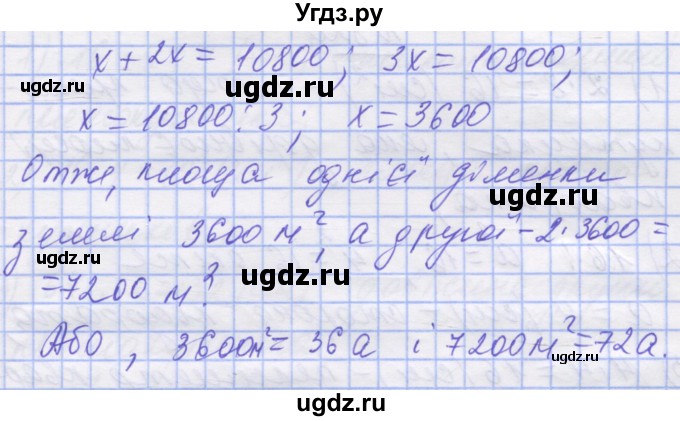 Угдз.ру
x + 2x = 10800; 3x = 10800;
x = 10800 : 3; x = 3600
Отже, площа однієї ділянки
землі 3600 м², а другої – 2·3600 =
= 7200 м².
Або, 3600м² = 36 а і 7200м² = 72а.
ugdz.ru
ugdz.ru
ugdz.ru
ugdz.ru
ugdz.ru
ugdz.ru
ugdz.ru
ugdz.ru